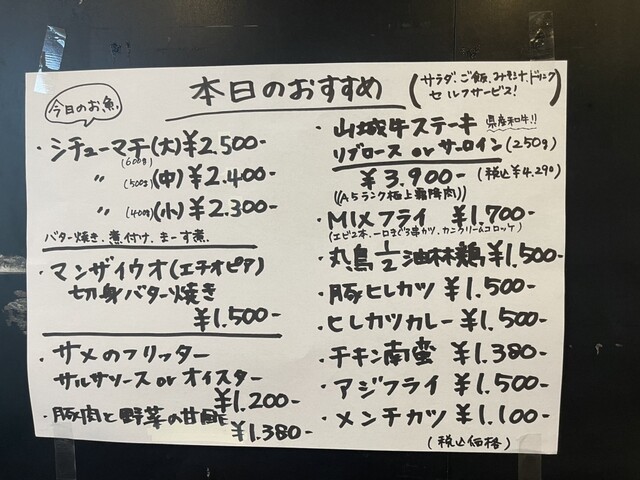 本日のおすすめ
(サラダ、ご飯、みそ汁、ドリンク
セルフサービス!)
今日のお魚
・シチューマチ(大)¥2.500-
(600g)
〃 (500g)(中)¥2.400-
〃 (400g)(小)¥2.300-
バター焼き、煮付け、まーす煮、
・マンザイウオ(エチオピア)
切身バター焼き
¥1.500-
・サメのフリッター
サルサソース or オイスター
¥1.200-
・豚肉と野菜の甘酢
¥1.380-
・山城牛ステーキ 県産和牛!!
リブロース or サーロイン(250g)
¥3.900- (税込¥4.290)
((A5ランク極上霜降肉))
・MIXフライ ¥1.700-
(エビ2本、一口まぐろ串カツ、カニクリームコロッケ)
・丸鳥1/2油林鶏¥1.500-
・豚ヒレカツ ¥1.500-
・ヒレカツカレー¥1.500-
・チキン南蛮 ¥1.380-
・アジフライ ¥1.500-
・メンチカツ ¥1.100-
(税込価格)